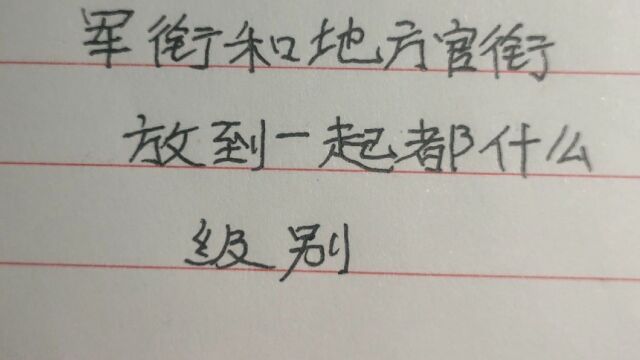 军衔和地方官衔
放到一起都什么
级别